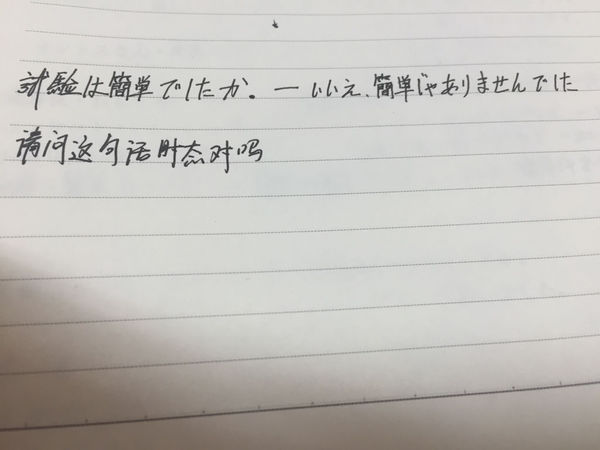 試験は簡単でしたか。ーいいえ、簡単じゃありませんでした
请问这句话时态对吗